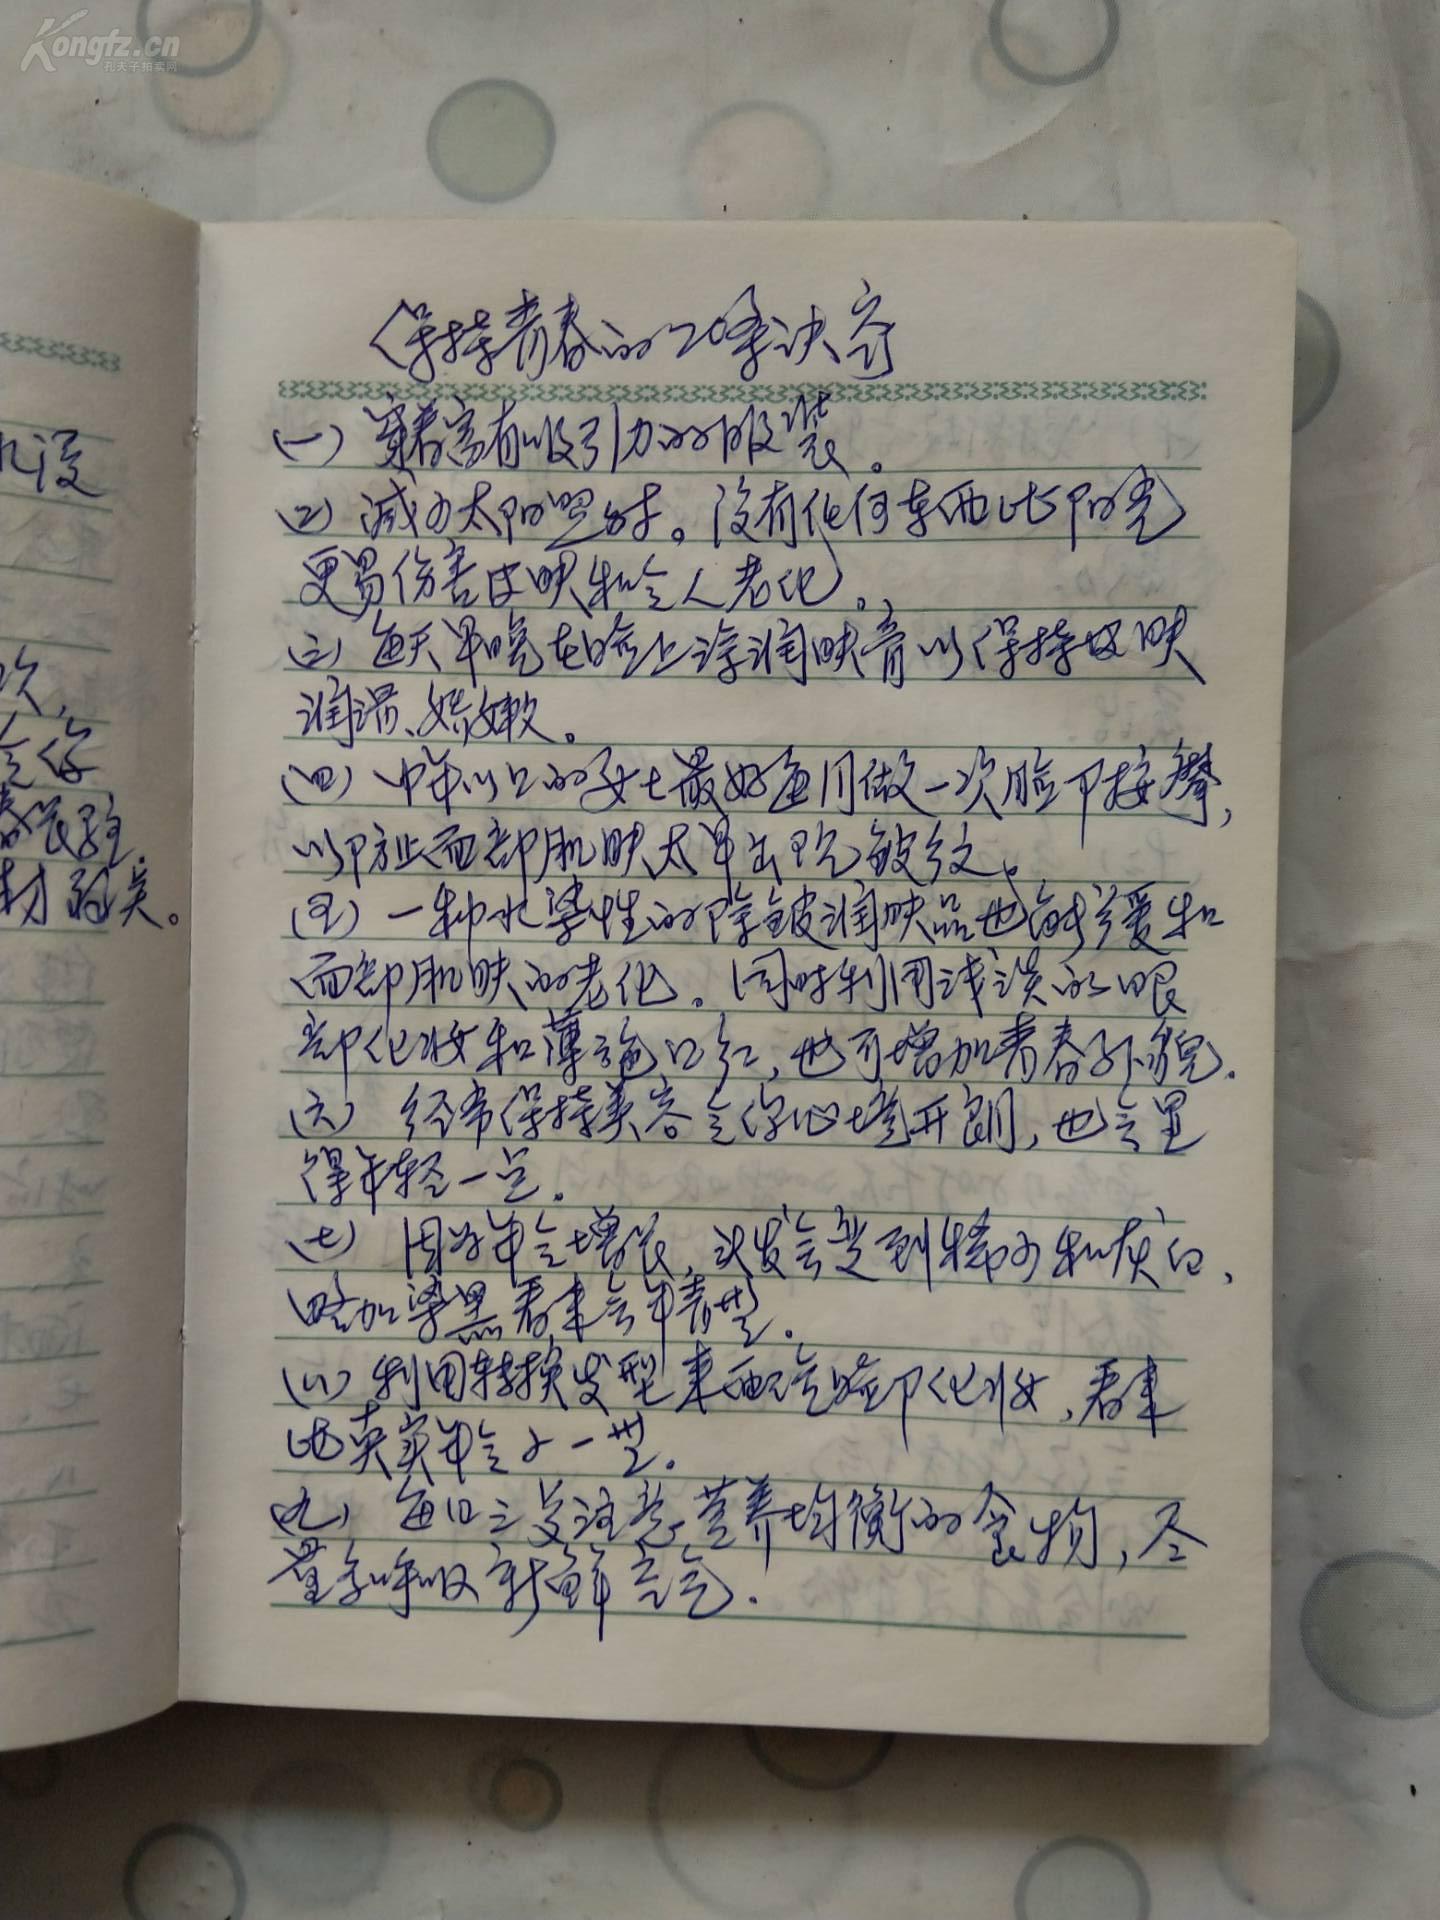 Kongfz.cn
孔夫子拍卖网
《保持青春的20条决窍
(一) 穿着富有吸引力的服装。
(二) 减少太阳照射。没有任何东西比阳光
更易伤害皮肤和令人老化。
(三) 每天早晚在脸上涂润肤膏以保持皮肤
润滑、娇嫩。
(四) 中年以上的女士最好每月做一次脸部按摩，
以防止面部肌肤太早出现皱纹。
(五) 一种水 性的除皱润肤品也能缓和
面部肌肤的老化。同时利用浅淡的眼
部化妆和薄施口红，也可增加青春外貌.
(六) 经常保持美容令你心境开朗，也会显
得年轻一点.
(七) 因为年令增长，头发会变到稀少和灰白，
略加染黑看来会年青些.
(八) 利用转换发型来配合脸部化妆，看来
比真实年令少一些.
(九) 每日三 注意营养均衡的食物，尽
量多呼吸新鲜空气.
次，
令你
材 有关。